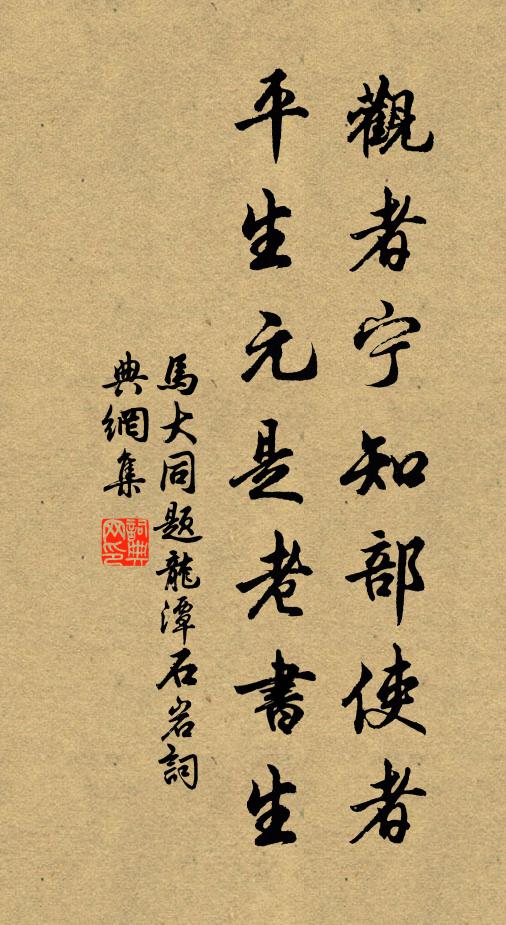 觀者宁知部使者
平生元是老書生
馬大同题龍潭石岩詞
典網集
詞典网印